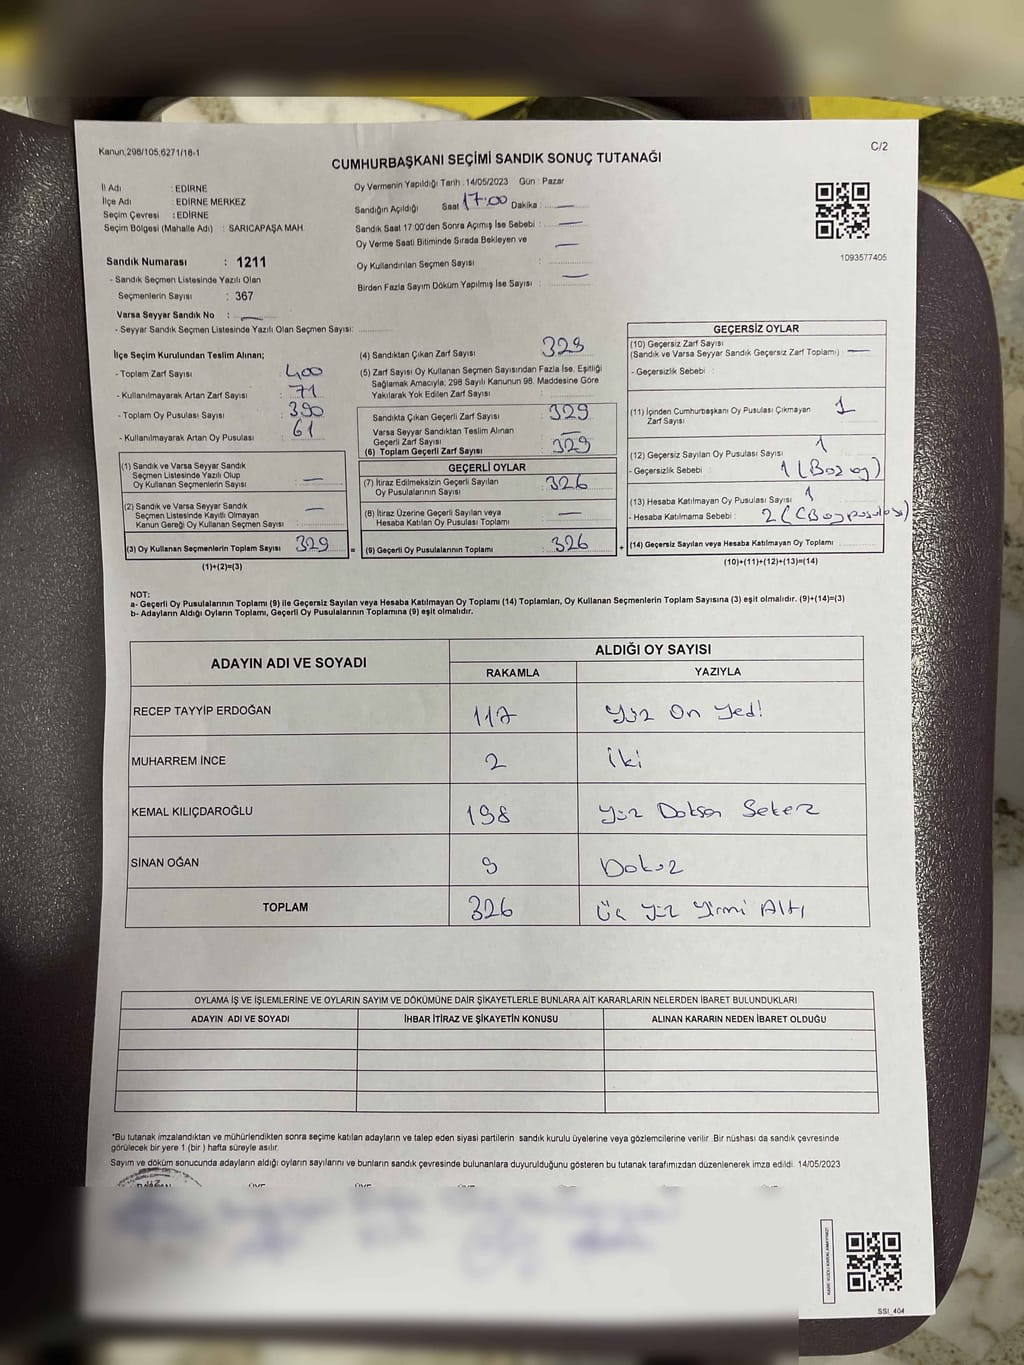 Kanun,298/105,6271/18-1
C/2
CUMHURBAŞKANI SEÇİMİ SANDIK SONUÇ TUTANAĞI
İl Adı : EDİRNE
İlçe Adı : EDİRNE MERKEZ
Seçim Çevresi : EDİRNE
Seçim Bölgesi (Mahalle Adı) : SARICAPAŞA MAH
Sandık Numarası : 1211
- Sandık Seçmen Listesinde Yazılı Olan
Seçmenlerin Sayısı : 367
Varsa Seyyar Sandık No : —
- Seyyar Sandık Seçmen Listesinde Yazılı Olan Seçmen Sayısı:
Oy Vermenin Yapıldığı Tarih :14/05/2023 Gün : Pazar
Sandığın Açıldığı Saat 17:00 Dakika : —
Sandık Saat 17:00'den Sonra Açımış İse Sebebi : —
Oy Verme Saati Bitiminde Sırada Bekleyen ve —
Oy Kullandırılan Seçmen Sayısı :
Birden Fazla Sayım Döküm Yapılmış İse Sayısı : —
1093577405
İlçe Seçim Kurulundan Teslim Alınan;
- Toplam Zarf Sayısı : 400
- Kullanılmayarak Artan Zarf Sayısı : 71
- Toplam Oy Pusulası Sayısı : 390
- Kullanılmayarak Artan Oy Pusulası : 61
(1) Sandık ve Varsa Seyyar Sandık
Seçmen Listesinde Yazılı Olup
Oy Kullanan Seçmenlerin Sayısı : —
(2) Sandık ve Varsa Seyyar Sandık
Seçmen Listesinde Kayıtlı Olmayan
Kanun Gereği Oy Kullanan Seçmen Sayısı : —
(3) Oy Kullanan Seçmenlerin Toplam Sayısı : 329
(1)+(2)=(3)
=
(4) Sandıktan Çıkan Zarf Sayısı : 329
(5) Zarf Sayısı Oy Kullanan Seçmen Sayısından Fazla İse, Eşitliği
Sağlamak Amacıyla; 298 Sayılı Kanunun 98. Maddesine Göre
Yakılarak Yok Edilen Zarf Sayısı :
Sandıkta Çıkan Geçerli Zarf Sayısı : 329
Varsa Seyyar Sandıktan Teslim Alınan
Geçerli Zarf Sayısı : —
(6) Toplam Geçerli Zarf Sayısı : 329
GEÇERLİ OYLAR
(7) İtiraz Edilmeksizin Geçerli Sayılan
Oy Pusulalarının Sayısı : 326
(8) İtiraz Üzerine Geçerli Sayılan veya
Hesaba Katılan Oy Pusulası Toplamı : —
(9) Geçerli Oy Pusulalarının Toplamı : 326
+
GEÇERSİZ OYLAR
(10) Geçersiz Zarf Sayısı
(Sandık ve Varsa Seyyar Sandık Geçersiz Zarf Toplamı) : —
- Geçersizlik Sebebi :
(11) İçinden Cumhurbaşkanı Oy Pusulası Çıkmayan
Zarf Sayısı : 1
(12) Geçersiz Sayılan Oy Pusulası Sayısı : 1
- Geçersizlik Sebebi : 1 (Boş oy)
(13) Hesaba Katılmayan Oy Pusulası Sayısı : 1
- Hesaba Katılmama Sebebi :
(14) Geçersiz Sayılan veya Hesaba Katılmayan Oy Toplamı :
(10)+(11)+(12)+(13)=(14)
NOT:
a- Geçerli Oy Pusulalarının Toplamı (9) ile Geçersiz Sayılan veya Hesaba Katılmayan Oy Toplamı (14) Toplamları, Oy Kullanan Seçmenlerin Toplam Sayısına (3) eşit olmalıdır. (9)+(14)=(3)
b- Adayların Aldığı Oyların Toplamı, Geçerli Oy Pusulalarının Toplamına (9) eşit olmalıdır.
ADAYIN ADI VE SOYADI
ALDIĞI OY SAYISI
RAKAMLA YAZIYLA
RECEP TAYYİP ERDOĞAN 117 Yüz On Yedi
MUHARREM İNCE 2 İki
KEMAL KILIÇDAROĞLU 198 Yüz Doksan Sekiz
SİNAN OĞAN 9 Dokuz
TOPLAM 326 Üç Yüz Yirmi Altı
OYLAMA İŞ VE İŞLEMLERİNE VE OYLARIN SAYIM VE DÖKÜMÜNE DAİR ŞİKAYETLERLE BUNLARA AİT KARARLARIN NELERDEN İBARET BULUNDUKLARI
ADAYIN ADI VE SOYADI İHBAR İTİRAZ VE ŞİKAYETİN KONUSU ALINAN KARARIN NEDEN İBARET OLDUĞU
*Bu tutanak imzalandıktan ve mühürlendikten sonra seçime katılan adayların ve talep eden siyasi partilerin sandık kurulu üyelerine veya gözlemcilerine verilir. Bir nüshası da sandık çevresinde
görülecek bir yere 1 (bir ) hafta süreyle asılır.
Sayım ve döküm sonucunda adayların aldığı oyların sayılarını ve bunların sandık çevresinde bulunanlara duyurulduğunu gösteren bu tutanak tarafımızdan düzenlenerek imza edildi. 14/05/2023
SSI_404